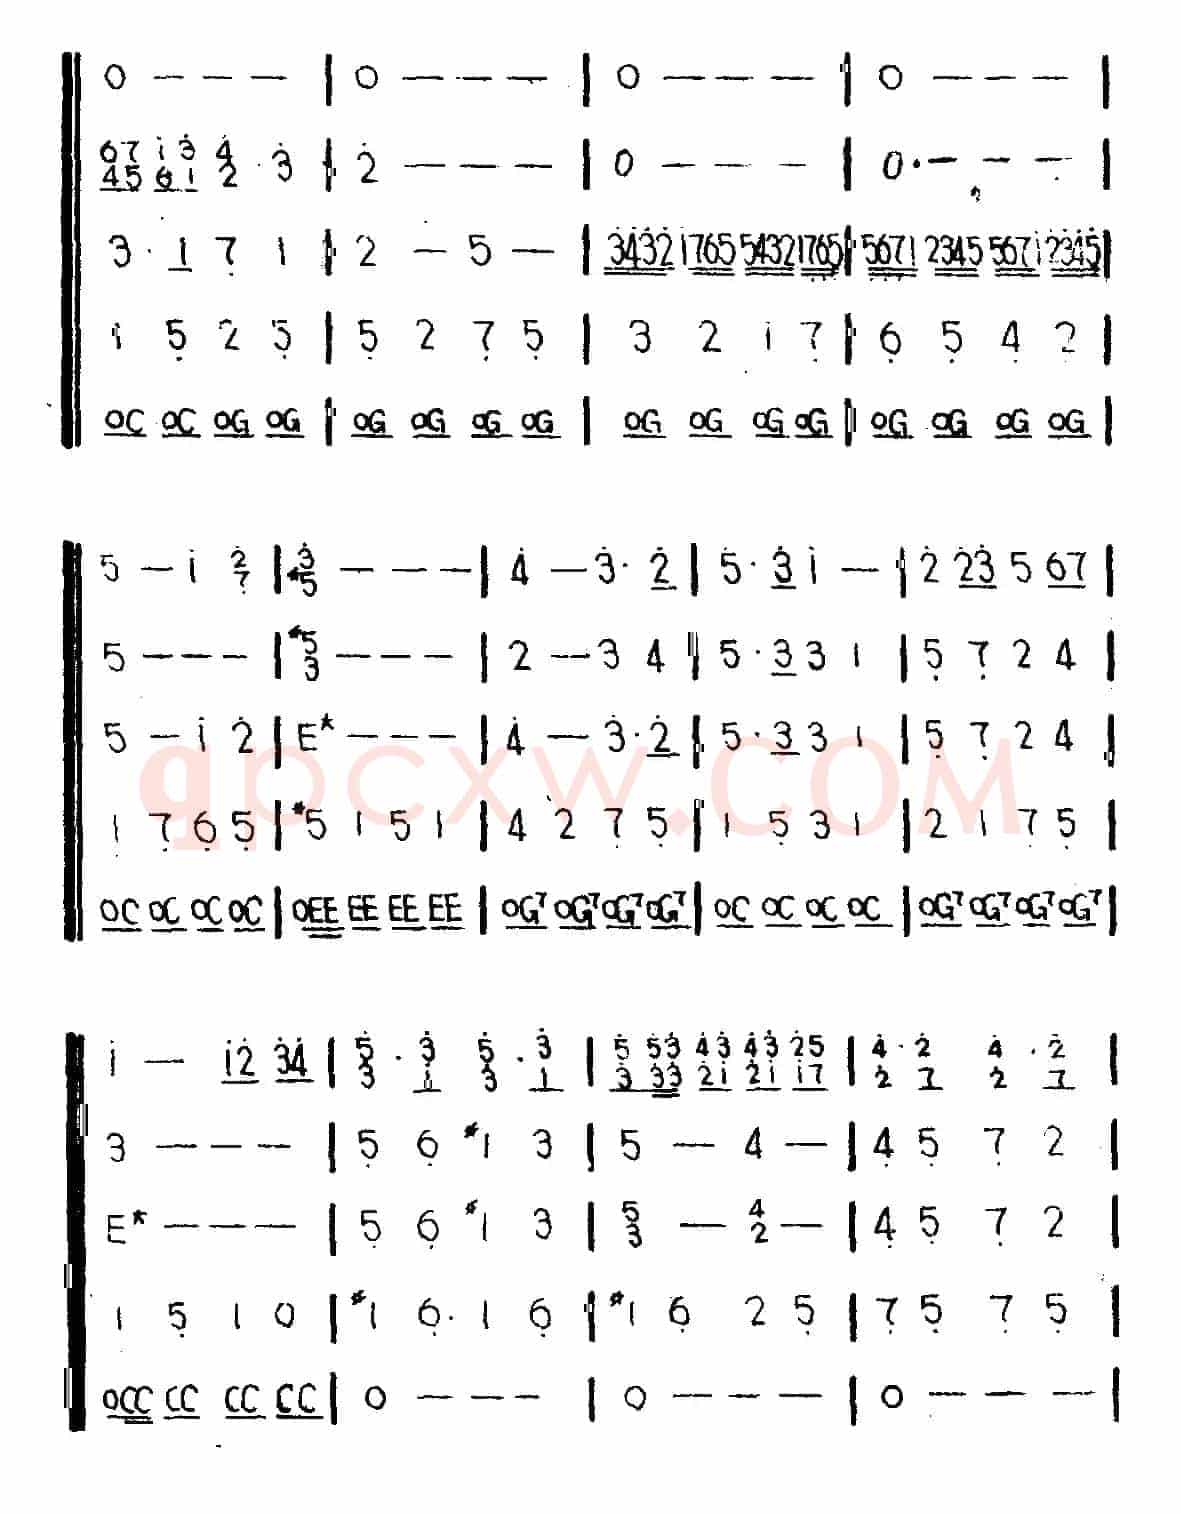 0 — — — | 0 — — — | 0 — — — | 0 — — — |
67 i̇ 3̇ 4̇ · 3̇ | 2̇ — — — | 0 — — — | 0 · — — — |
45 61 2
3 · 1 7̣ 1 | 2 — 5 — | 3̇4̇3̇2̇ i̇765 5432 17̣6̣5̣ | 5̣6̣7̣1 2345 567i̇ 2̇3̇4̇5̇ |
1 5̣ 2 5̣ | 5̣ 2 7̣ 5̣ | 3 2 1 7̣ | 6̣ 5̣ 4̣ 2 |
0C 0C 0G 0G | 0G 0G 0G 0G | 0G 0G 0G 0G | 0G 0G 0G 0G |
5 — i̇ 2̇ | 3̇ — — — | 4̇ — 3̇ · 2̇ | 5̇ · 3̇ i̇ — | 2̇ 2̇3̇ 5 67 |
7̣ #5̣
5 — — — | #5 — — — | 2 — 3 4 | 5 · 3 3 1 | 5̣ 7̣ 2 4 |
3
5 — i̇ 2̇ | E* — — — | 4̇ — 3̇ · 2̇ | 5 · 3 3 1 | 5̣ 7̣ 2 4 |
1 7̣ 6̣ 5̣ | #5 1 5 1 | 4 2 7̣ 5̣ | 1 5̣ 3 1 | 2 1 7̣ 5̣ |
0C 0C 0C 0C | 0EE EE EE EE | 0G⁷ 0G⁷ 0G⁷ 0G⁷ | 0C 0C 0C 0C | 0G⁷ 0G⁷ 0G⁷ 0G⁷ |
i̇ — i̇2̇ 3̇4̇ | 5̇ · 3̇ 5̇ · 3̇ | 5̇ 5̇3̇ 4̇3̇ 4̇3̇ 2̇5 | 4̇ · 2̇ 4̇ · 2̇ |
3̇ i̇ 3̇ 1 | 3̇ 3̇3̇ 2̇i̇ 2̇i̇ i̇7 | 2 7 2 7
3 — — — | 5̣ 6̣ #1 3 | 5 — 4 — | 4̣ 5̣ 7̣ 2 |
E* — — — | 5̣ 6̣ #1 3 | 5 — 4 — | 4̣ 5̣ 7̣ 2 |
3 2
1 5̣ 1 0 | #1 6̣ · 1 6̣ | #1 6̣ 2 5̣ | 7̣ 5̣ 7̣ 5̣ |
0CC CC CC CC | 0 — — — | 0 — — — | 0 — — — |
qpcxw.COM